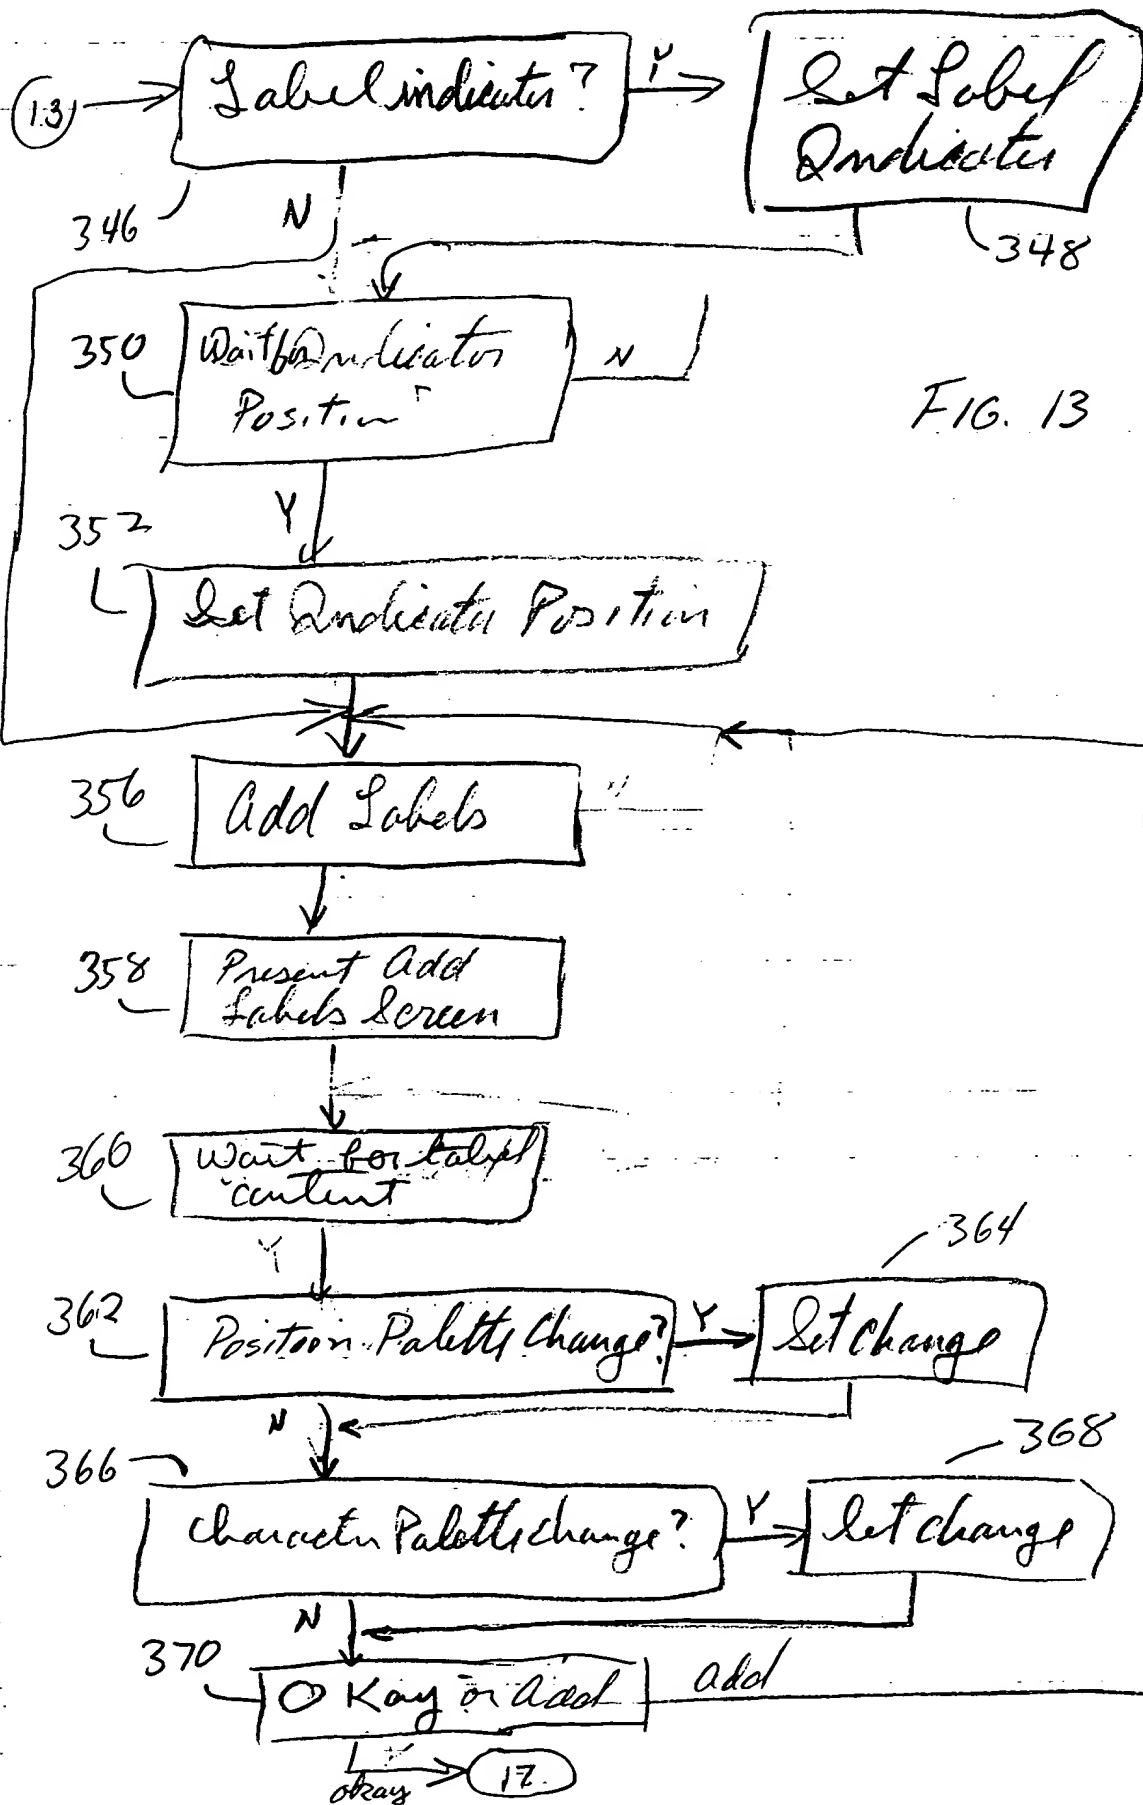 13
Label indicator?
Y
Set Label
Indicator
346
N
348
350
Wait for Indicator
Position
N
FIG. 13
Y
352
Set Indicator Position
356
Add Labels
358
Present Add
Labels Screen
360
Wait for label
content
Y
364
362
Position Palette Change?
Y
Set change
N
368
366
Character Palette change?
Y
Set change
N
370
O Kay or Add
Add
okay
17